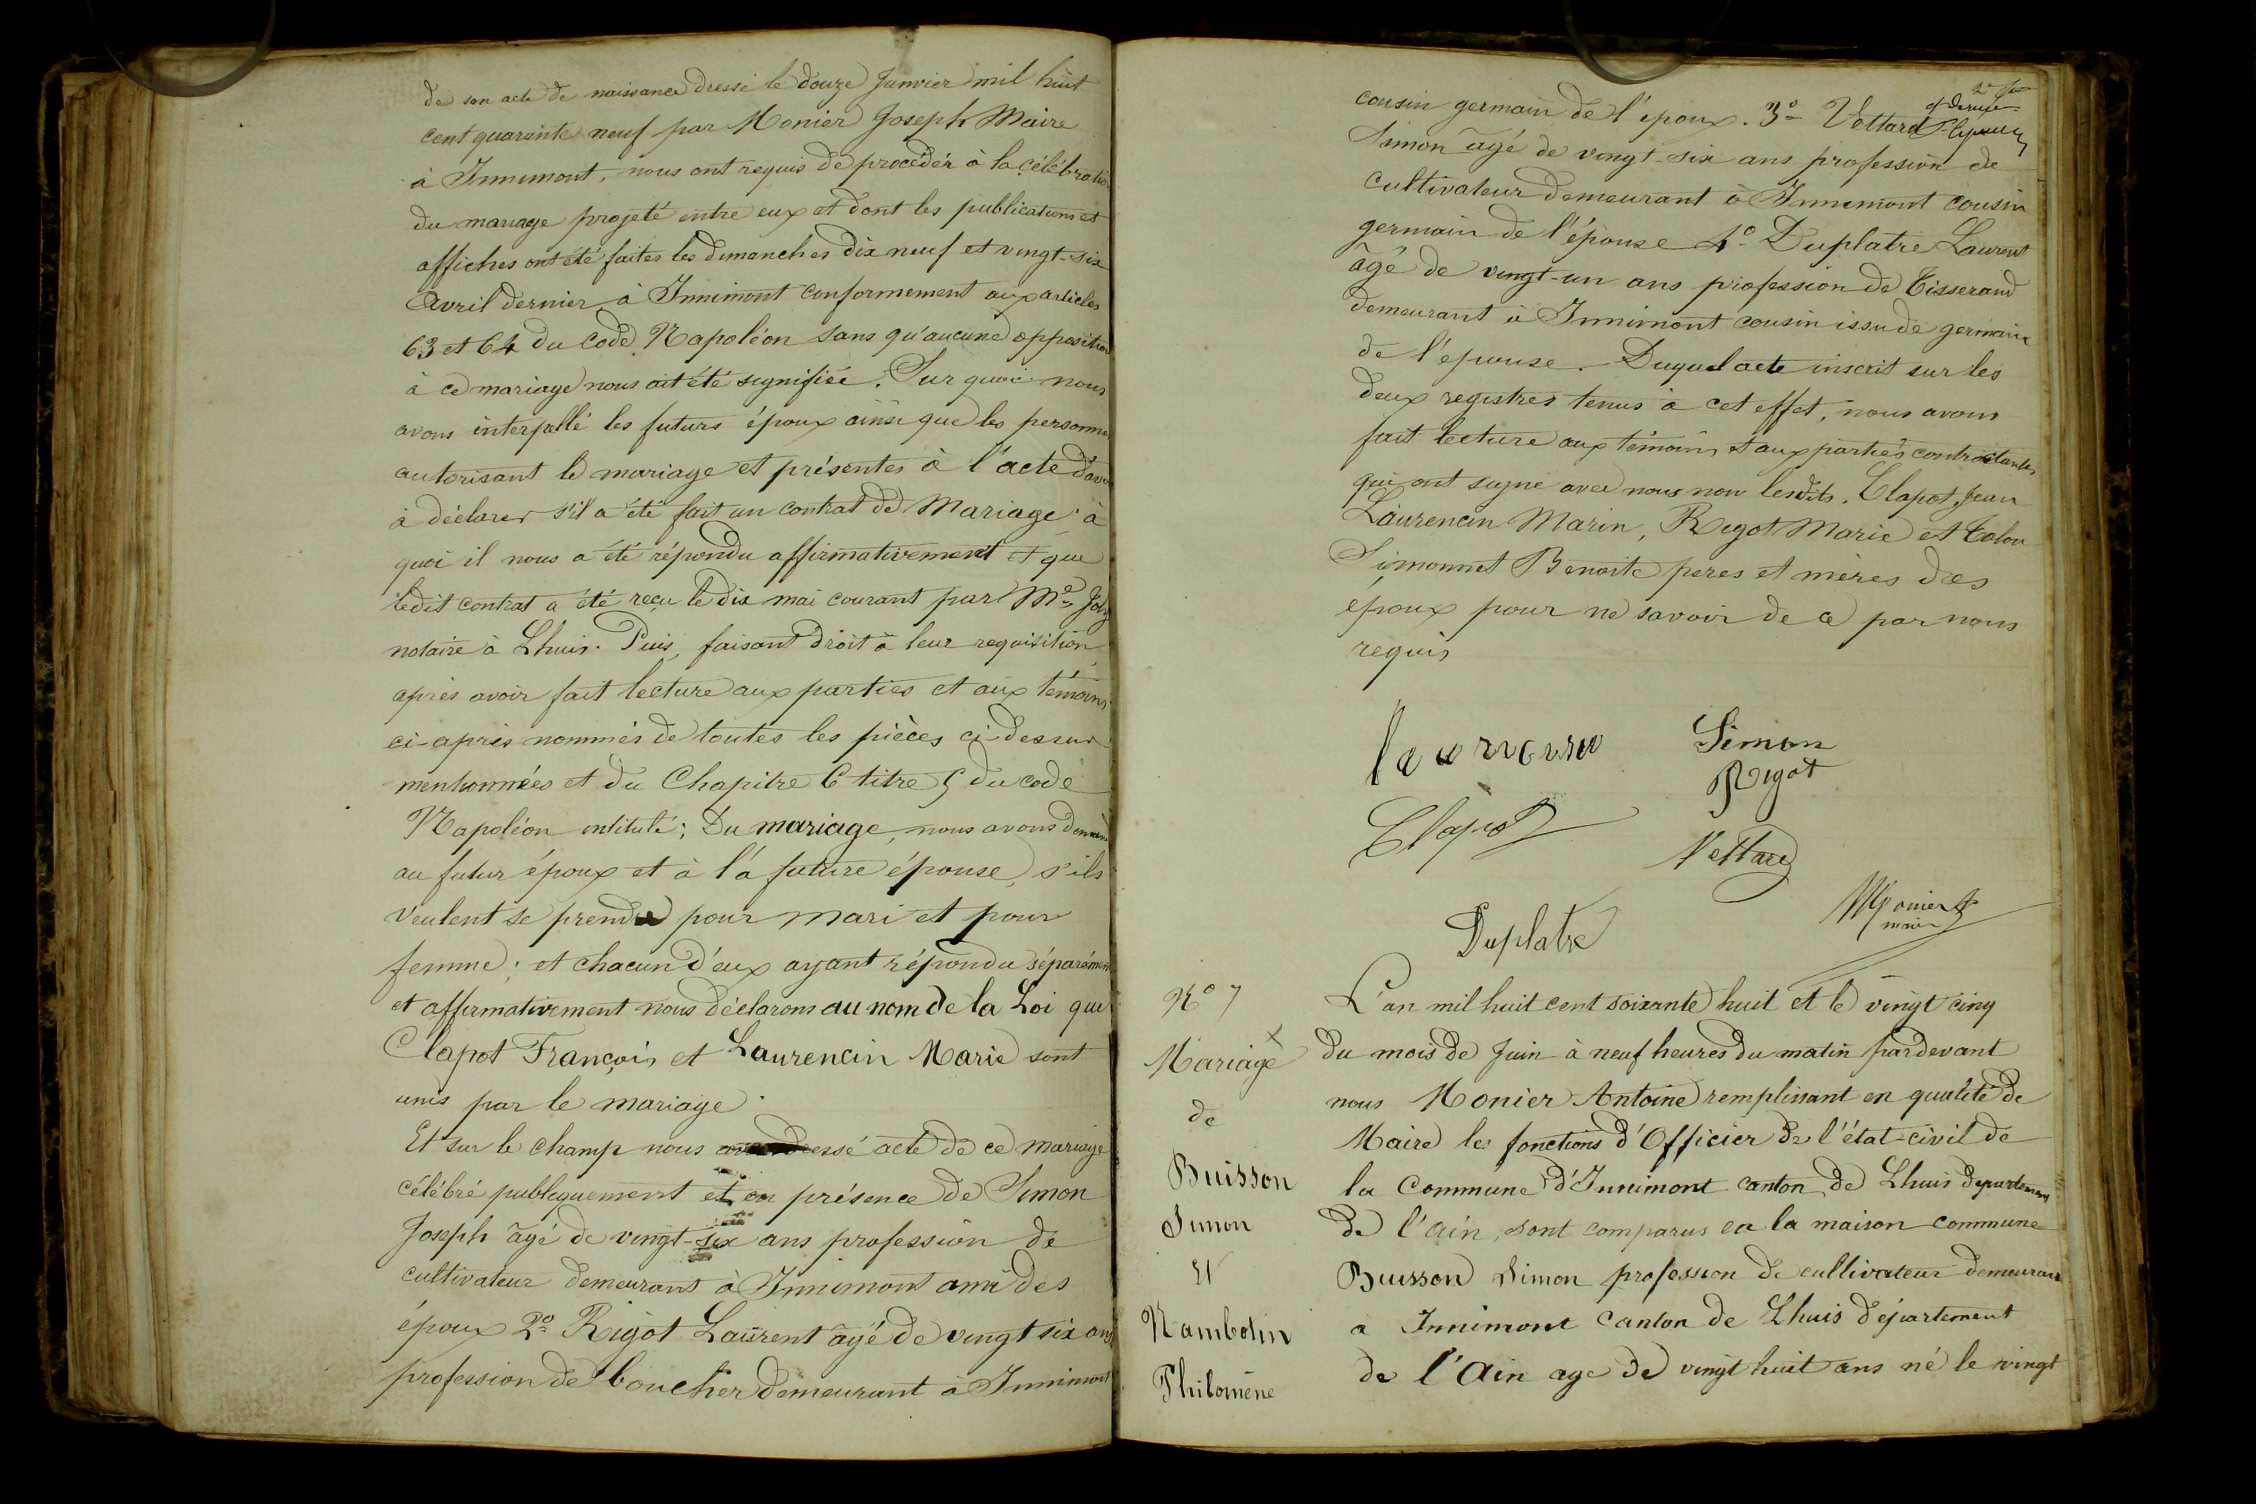 de son acte de naissance dressé le douze Janvier mil huit
cent quarante neuf par Monier Joseph Maire
à Innimont, nous ont requis de procéder à la célébration
du mariage projeté entre eux et dont les publications et
affiches ont été faites les dimanches dix neuf et vingt-six
Avril dernier à Innimont conformement aux articles
63 et 64 du Code Napoléon sans qu'aucune opposition
à ce mariage nous ait été signifiée. Sur quoi nous
avons interpellé les futurs époux ainsi que les personnes
autorisant le mariage et présentes à l'acte d'avoir
à déclarer s'il a été fait un contrat de Mariage à
quoi il nous a été répondu affirmativement et que
ledit contrat a été reçu le dix mai courant par Me Joly
notaire à Lhuis. Puis, faisant droit à leur requisition,
après avoir fait lecture aux parties et aux témoins
ci-après nommés de toutes les pièces ci-dessus
mentionnées et du Chapitre 6 titre 5 du code
Napoléon intitulé; Du mariage, nous avons demandé
au futur époux et à la future épouse, s'ils
veulent se prendre pour mari et pour
femme; et chacun d'eux ayant répondu séparément
et affirmativement nous déclarons au nom de la Loi que
Clapot François et Laurencin Marie sont
unis par le mariage.
Et sur le champ nous dressé acte de ce mariage
célébré publiquement et en présence de Simon
Joseph âgé de vingt-six ans profession de
cultivateur demeurant à Innimont ami des
époux 2o Rigot Laurent âgé de vingt six ans
profession de boucher demeurant à Innimont
2e
et dernier
cousin germain de l'époux. 3o Vettard
Simon âgé de vingt-six ans profession de
cultivateur demeurant à Innimont cousin
germain de l'épouse 4o Duplatre Laurent
âgé de vingt-un ans profession de Tisserand
demeurant à Innimont cousin issu de germain
de l'epouse. Duquel acte inscrit sur les
deux registres tenus à cet effet, nous avons
fait lecture aux témoins et aux parties contractantes
qui ont signé avec nous non lesdits. Clapot Jean
Laurencin Marin, Rigot Marie et
Simonnet Benoite peres et mères des
epoux pour ne savoir de ce par nous
requis
laurencin Simon
Rigot
Clapot
Vettard
Monier
maire
Duplatre
No 7
Mariage
de
Buisson
Simon
Et
Nambotin
Philomène
L'an mil huit cent soixante huit et le vingt cinq
du mois de Juin à neuf heures du matin pardevant
nous Monier Antoine remplissant en qualité de
Maire les fonctions d'Officier de l'état-civil de
la Commune d'Innimont canton de Lhuis département
de l'ain, sont comparus en la maison commune
Buisson Simon profession de cultivateur demeurant
a Innimont canton de Lhuis département
de l'Ain age de vingt huit ans né le vingt